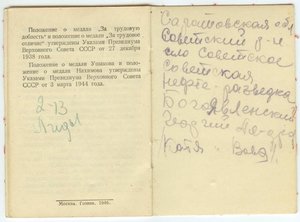 Положение о медали „За трудовую
доблесть" и положение о медали „За трудовое
отличие" утверждены Указами Президиума
Верховного Совета СССР от 27 декабря
1938 года.
Положение о медали Ушакова и положение
о медали Нахимова утверждены
Указами Президиума Верховного Совета
СССР от 3 марта 1944 года.
2-13
Москва. Гознак. 1946.
Саратовская обл
Советский р-н
село Советское
Советская
нефте-разведка
Богоявленский
Георгий
Катя Вова